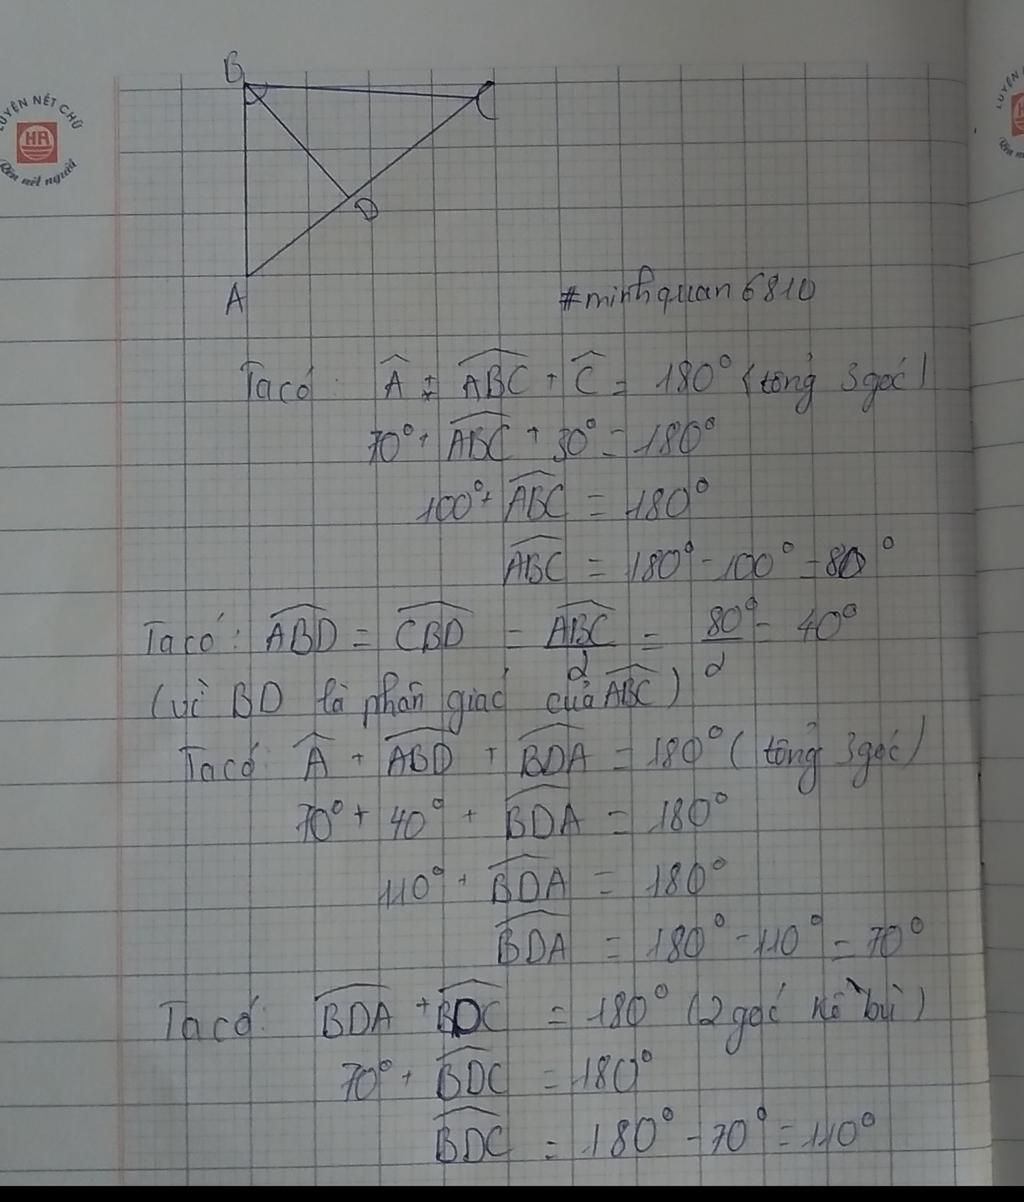 LUYỆN NÉT CHỮ
HR
Rèn nết người
B
C
D
A
#minhquan6810
Ta có: Â + ABC + Ĉ = 180° (tổng 3 góc)
70° + ABC + 30° = 180°
100° + ABC = 180°
ABC = 180° - 100° = 80°
Ta có: ABD = CBD = ABC/2 = 80°/2 = 40°
(vì BD là phân giác của ABC)
Ta có: Â + ABD + BDA = 180° (tổng 3 góc)
70° + 40° + BDA = 180°
110° + BDA = 180°
BDA = 180° - 110° = 70°
Ta có: BDA + BDC = 180° (2 góc kề bù)
70° + BDC = 180°
BDC = 180° - 70° = 110°